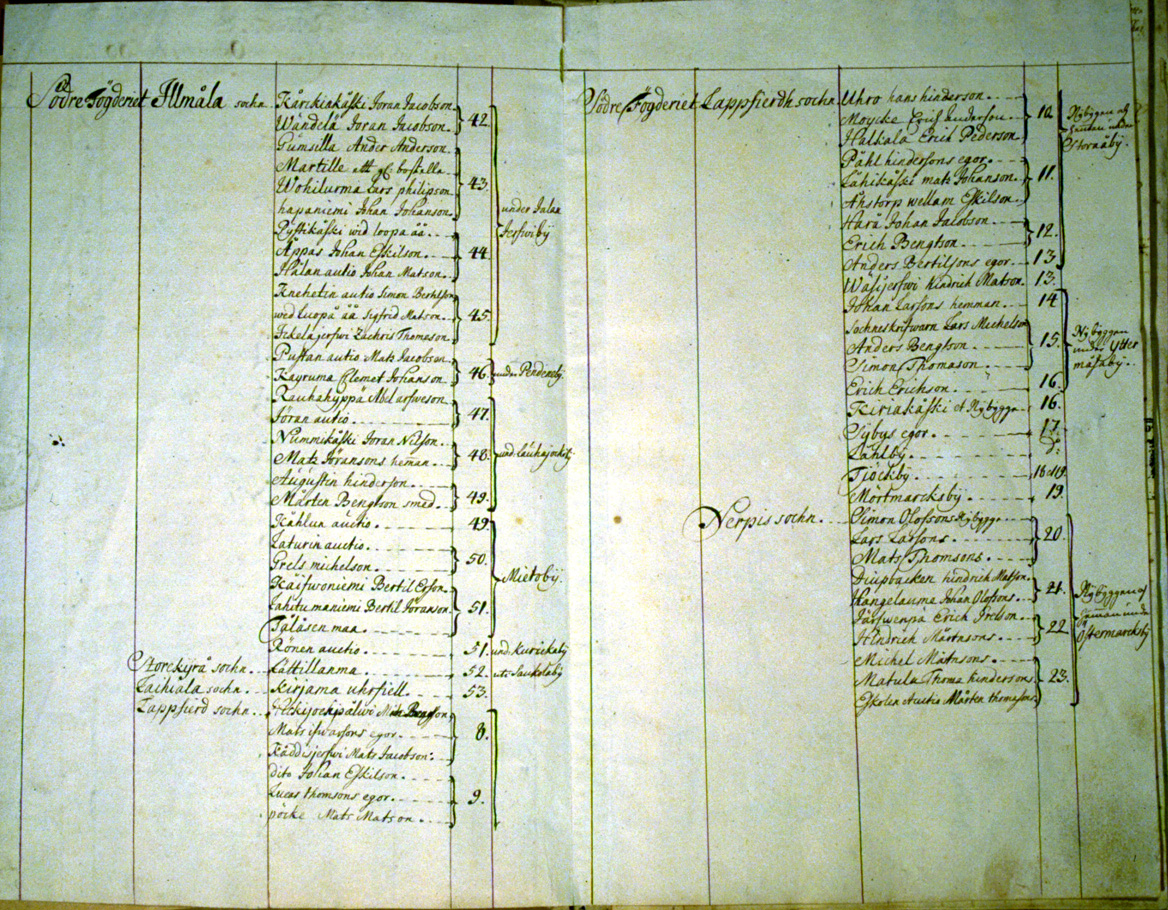 Södre Fögderiet Illmåla sochn Kärckiakåski Joran Jacobson 42.
Wändelä Joran Jacobson
Gumsilla Ander Anderson
Martille ett bostelle
Wohilurma Lars philipson 43.
hapaniemi Johan Johanson
under Jalasjerfwiby
Ryssikåski wid loopa åå
Äppas Johan Eskilson 44
Hålan autio Johan Matson
Knehetin autio Simon Bertilson
wed luopa åå Sigfrid Matson 45.
Ickeläjerfwi Zachris Thomason
Pustan autio Matz Jacobson
Kayruma Clemet Johanson 46 under Pendenby.
Kauhahyppä Abel arfweson 47.
Jöran autio
Nummikåski Joran Nilson
Matz Jöransons hemman 48. und. kauhajockij
Augustin hinderson
Mårten Bengtson smed 49.
Kåhlun auctio 49.
Laturin auctio
Grels michelson 50.
Käifwoniemi Bertil Erson Mietoby.
Lahitumaniemi Bertil Jöranson 51.
Taläsen maa
Rönen auctio 51. und. Kurickaby
Storekyrå sochn Lattillanma 52.
Laihiala sochn Kirjama uhrfiell 53.
Lappfierd sochn
Mats ifwarsons egor 8.
Käddisjerfwi Mats Jacobson
dito Johan Eskilson
Lucas thomsons egor 9.
pöcke Mats Matson
Södre Fögderiet Lappfierdh sochn Uhro hans hinderson
Moycke Erich Anderson 10.
Halkala Erich Pederson
Påhl hindersons egor
Lähikåski matz Johanson 11.
Ahstorp wellam Eskilson
Harå Johan Jacobson
Erich Bengtson 12.
Anders Bertilsons egor 13
Wasijerfwi hindrich Matson 13.
Johan Larsons hemman 14
Sochneskrifwarn Lars Michelson
Anders Bengtson 15.
Simon Thomason
Nybyggen under Ytter måsaby.
Erich Erichson 16.
Kiriakåski et Nybygge 16.
Sybys egor 17.
Låhlby
Tiöckby 18 et 19
Mörtmarcksby 19.
Nerpis sochn. Simon Olofsons Nybygge
Lars Larsons 20.
Mats Thomsons
Diupbacken hindrich Matson
Hangelauma Johan Olofsons 21.
Järfwenpä Erich Ericson
Hindrich Mårtnsons 22
Östermarcksby
Michel Matnsons
Matula Thoma hindersons 23.
Eskolen Auctio Mårten thomasons